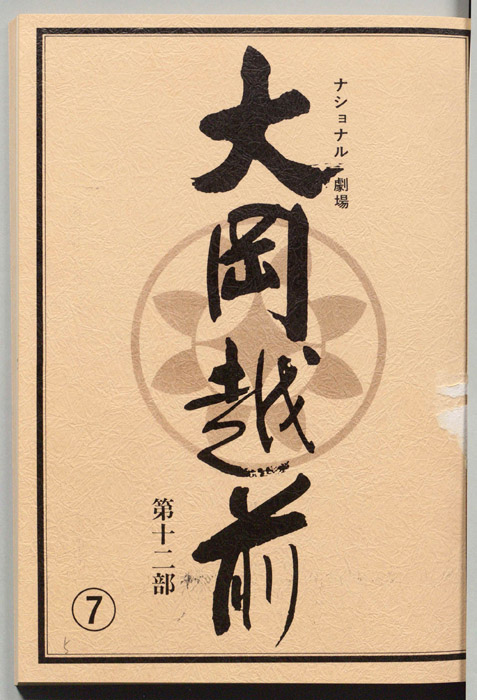 ナショナル劇場
大岡越前
第十二部
⑦